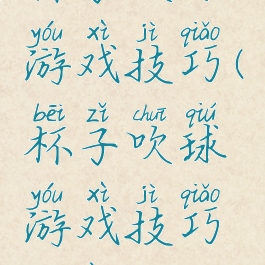 yóu xì jì qiǎo
游戏技巧(
bēi zǐ chuī qiú
杯子吹球
yóu xì jì qiǎo
游戏技巧